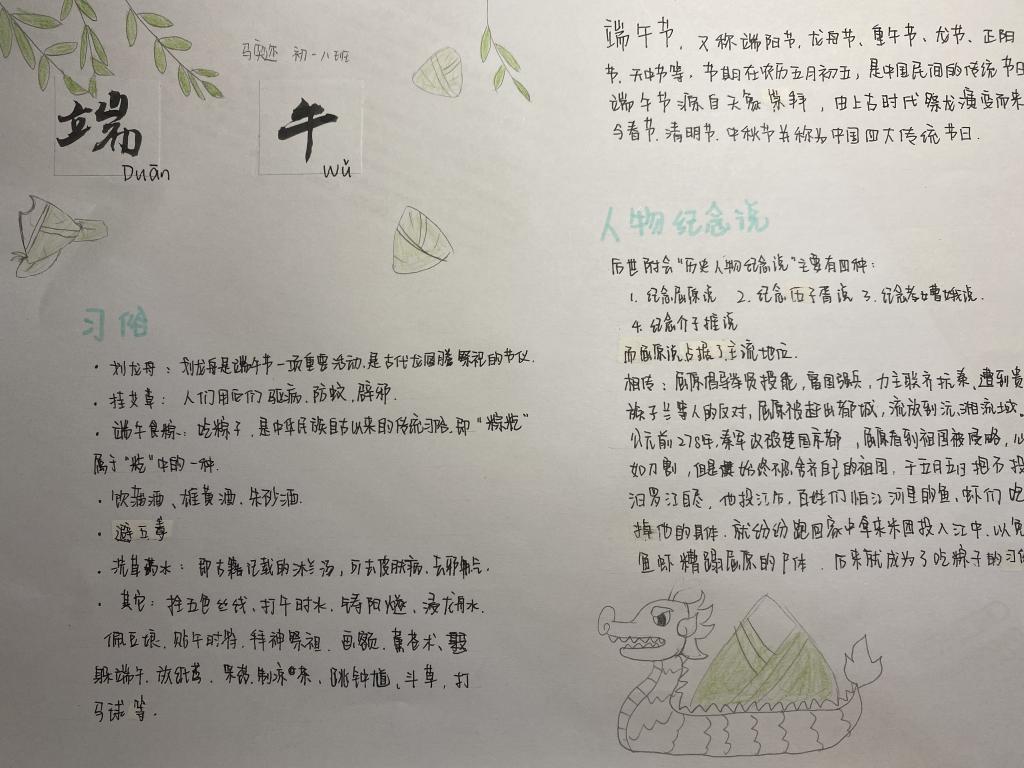 端午
Duān Wǔ
初一八班
端午节,又称端阳节,龙舟节、重午节、龙节、正阳
节、天中节等,节期在农历五月初五,是中国民间的传统节日
端午节源自天象崇拜,由上古时代祭龙演变而来
今春节、清明节、中秋节并称为中国四大传统节日.
习俗
· 划龙舟:划龙舟是端午节一项重要活动,是古代龙图腾祭祀的节仪.
· 挂艾草:人们用它们驱病、防蚊、辟邪.
· 端午食粽:吃粽子,是中华民族自古以来的传统习俗,即“粽籺”
属于“籺”中的一种.
· 饮菖蒲酒、雄黄酒、朱砂酒.
· 避五毒
· 洗草药水:即古籍记载的沐兰汤,可去皮肤病、去邪气.
· 其它:拴五色丝线、打午时水、铸阳燧、浸龙舟水.
佩豆娘、贴午时符、拜神祭祖、画额、薰苍术、
躲端午、放纸鸢、采药、制凉茶、跳钟馗、斗草、打
马球等.
人物纪念说
后世附会“历史人物纪念说”主要有四种:
1. 纪念屈原说 2. 纪念伍子胥说 3. 纪念孝女曹娥说.
4. 纪念介子推说
而屈原说占据了主流地位.
相传:屈原倡导举贤授能,富国强兵,力主联齐抗秦、遭到贵
族子兰等人的反对,屈原被赶出都城,流放到沅、湘流域.
公元前278年,秦军攻破楚国京都,屈原看到祖国被侵略,心
如刀割,但是始终不忍舍弃自己的祖国,于五月五日抱石投
汨罗江自尽,他投江后,百姓们怕江河里的鱼、虾们吃
掉他的身体,就纷纷跑回家中拿来米团投入江中,以免
鱼虾糟蹋屈原的尸体.后来就成为了吃粽子的习俗